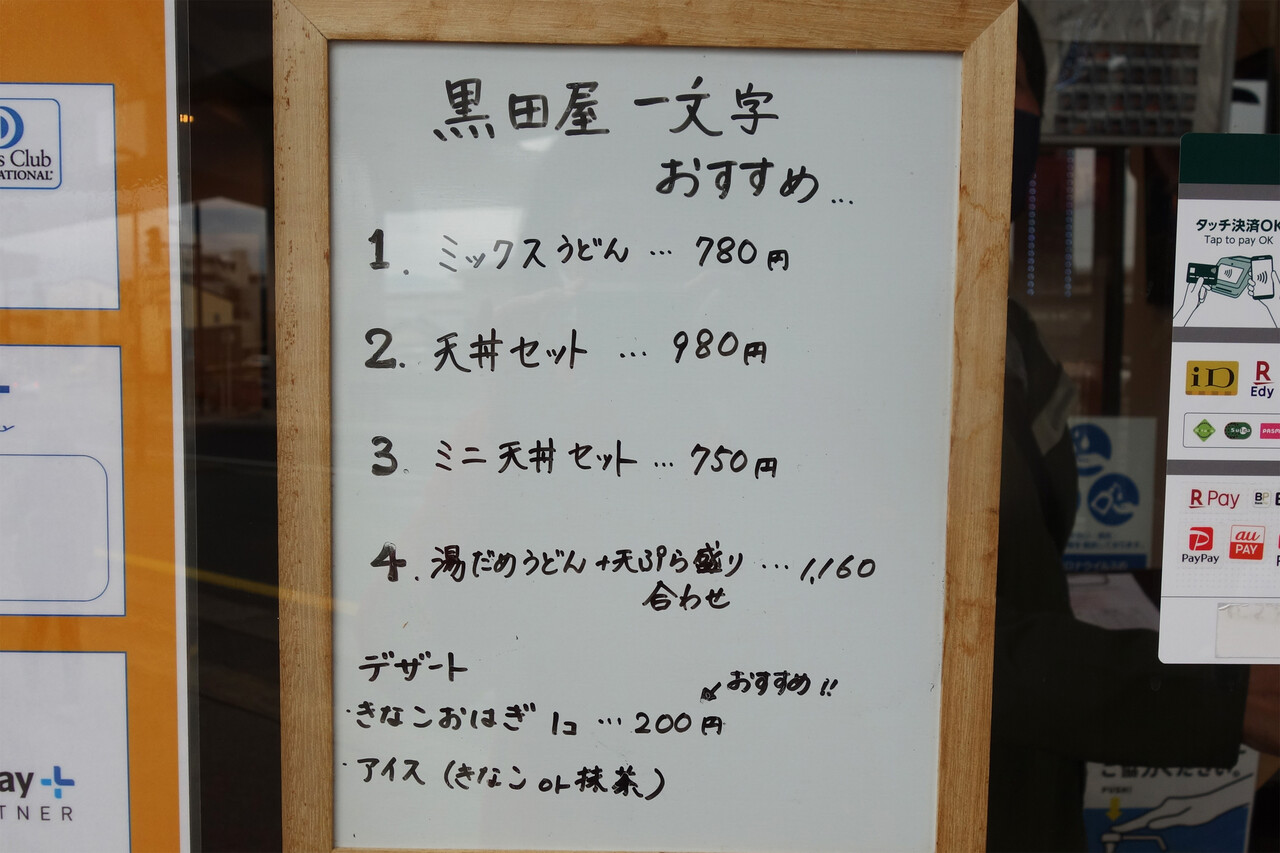 黒田屋 一文字
おすすめ…
1. ミックスうどん … 780円
2. 天丼セット … 980円
3. ミニ天丼セット … 750円
4. 湯だめうどん+天ぷら盛り … 1,160
合わせ
デザート
おすすめ!!
・きなこおはぎ 1コ … 200円
・アイス (きなこ or 抹茶)
s Club
NATIONAL
ay
TNER
タッチ決済OK
Tap to pay OK
iD
R
Edy
Suica
PASM
R Pay
BP
PayPay
au
PAY
ご協力ください。
PUSH!